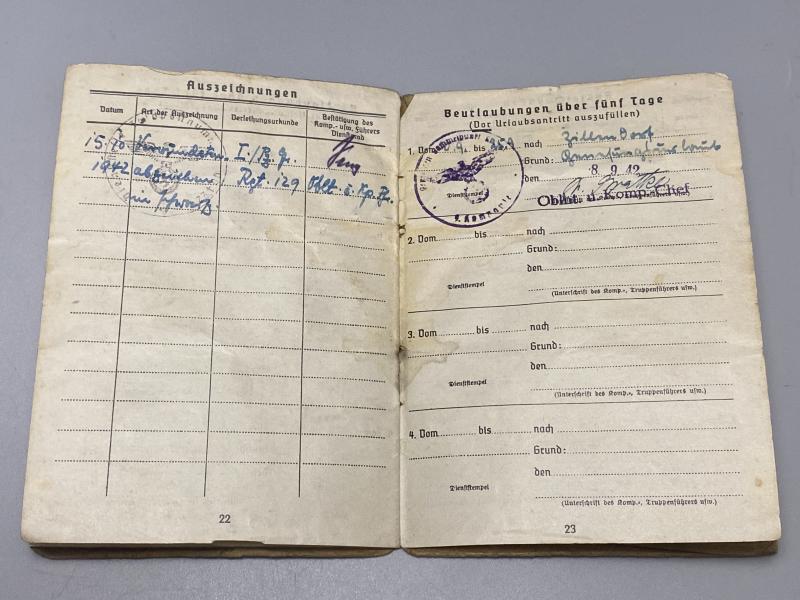 Auszeichnungen
Datum
Art der Auszeichnung
Verleihungsurkunde
Bestätigung des
Komp.- usw. Führers
Dienstgrad
15.10. Verwundeten I./Pz.Gr.
1942 abzeichen Rgt. 129 Oblt. u. Kp. Fhr.
in schwarz
22
Beurlaubungen über fünf Tage
(Vor Urlaubsantritt auszufüllen)
1. Vom 9.9. bis 25.9. nach Zillendorf
Grund: Genesungsurlaub
den 8.9.42
Dienststempel
Oblt. u. Komp.-Chef
2. Vom bis nach
Grund:
den
Dienststempel
(Unterschrift des Komp.-, Truppenführers usw.)
3. Vom bis nach
Grund:
den
Dienststempel
(Unterschrift des Komp.-, Truppenführers usw.)
4. Vom bis nach
Grund:
den
Dienststempel
(Unterschrift des Komp.-, Truppenführers usw.)
23